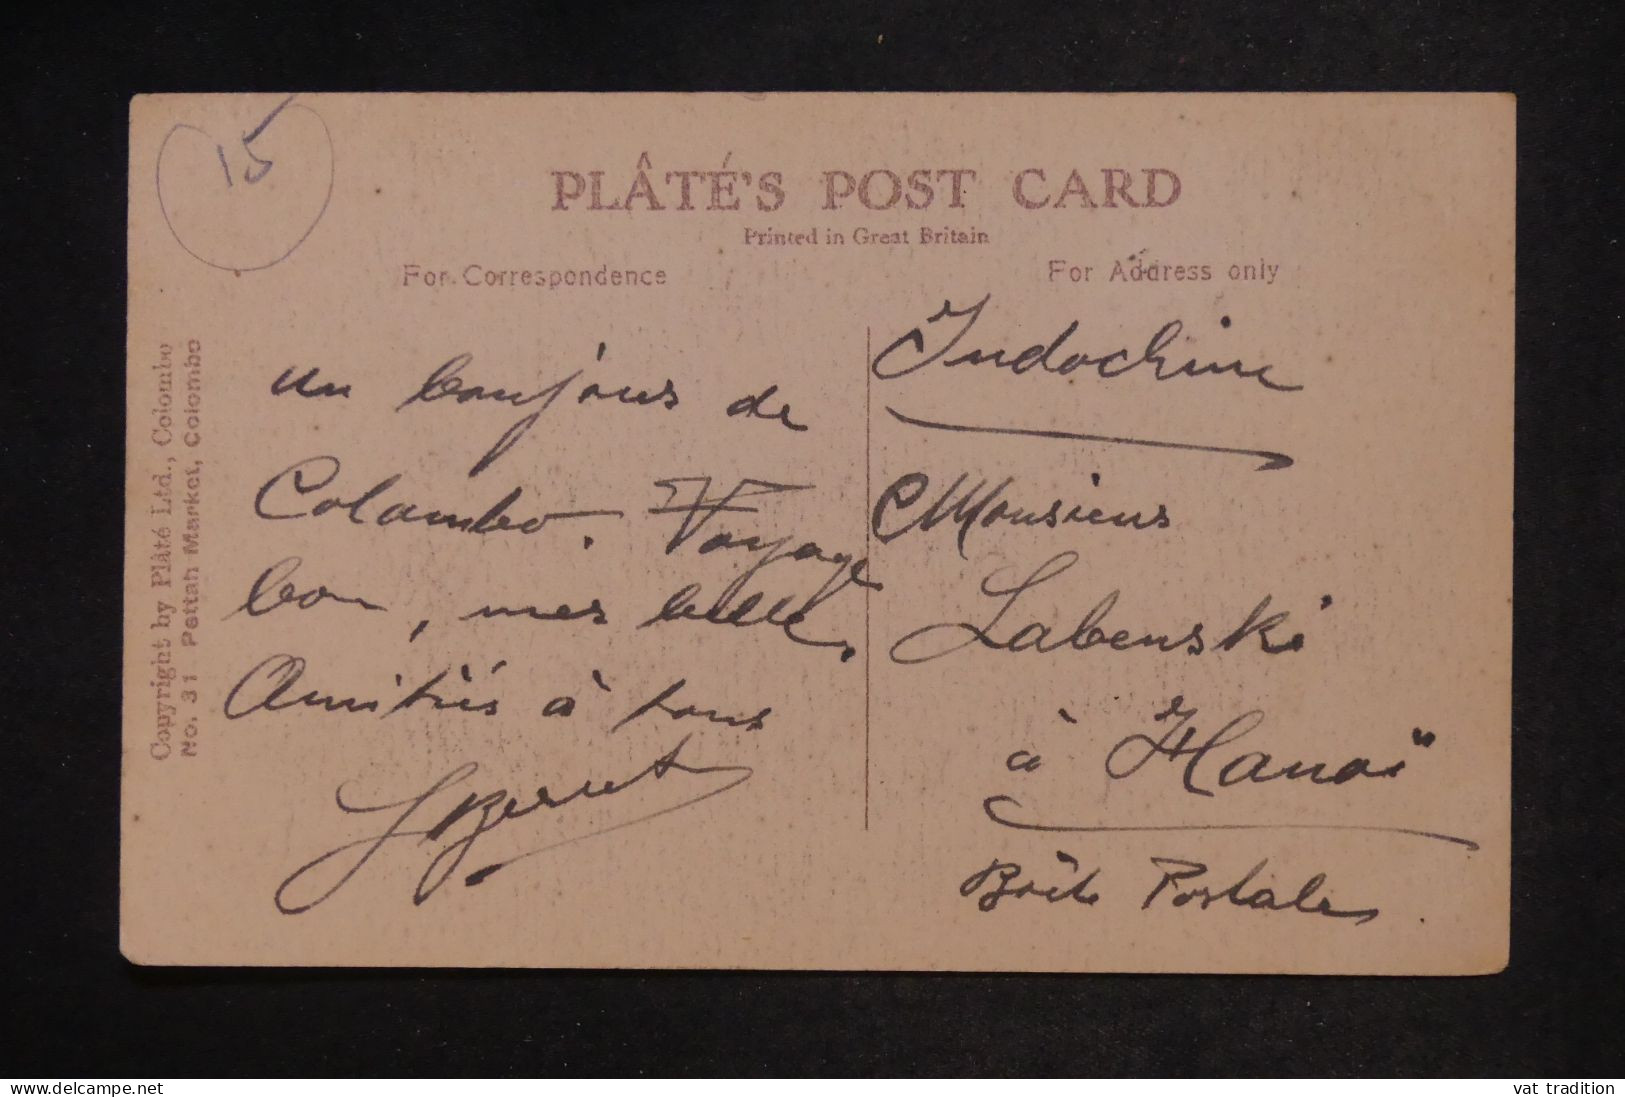 15
PLÂTÉ'S POST CARD
Printed in Great Britain
For Correspondence
For Address only
Copyright by Plâté Ltd., Colombo
No. 31 Pettah Market, Colombo
un bonjour de
Colombo. Voyage
bon, mer belle.
Amitiés à tous
Indochine
Monsieur
Labenski
à Hanoï
Boîte Postale
www.delcampe.net
vat tradition